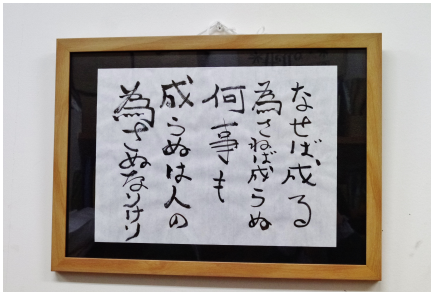 なせば、成る
為さねば成らぬ
何事も
成らぬは人の
為さぬなりけり